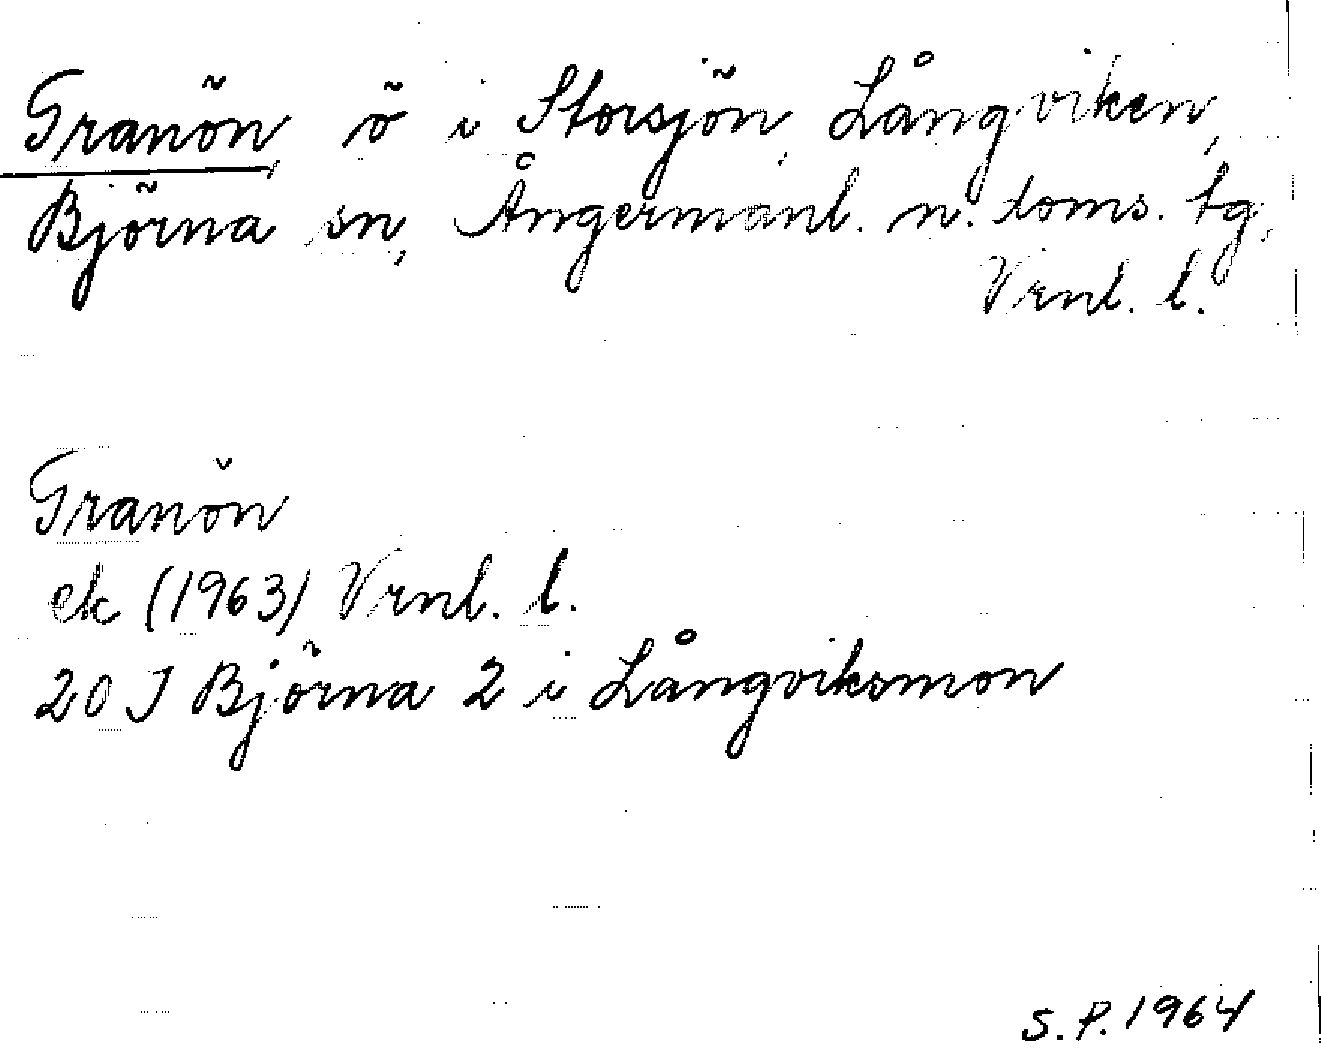 Granön, ö i Storsjön, Långviken,
Björna sn, Ångermanl. n. doms. tg,
Vrnl. l.
Granön
ek (1963) Vrnl. l.
20 J Björna 2 i Långviksmon
S.P. 1964